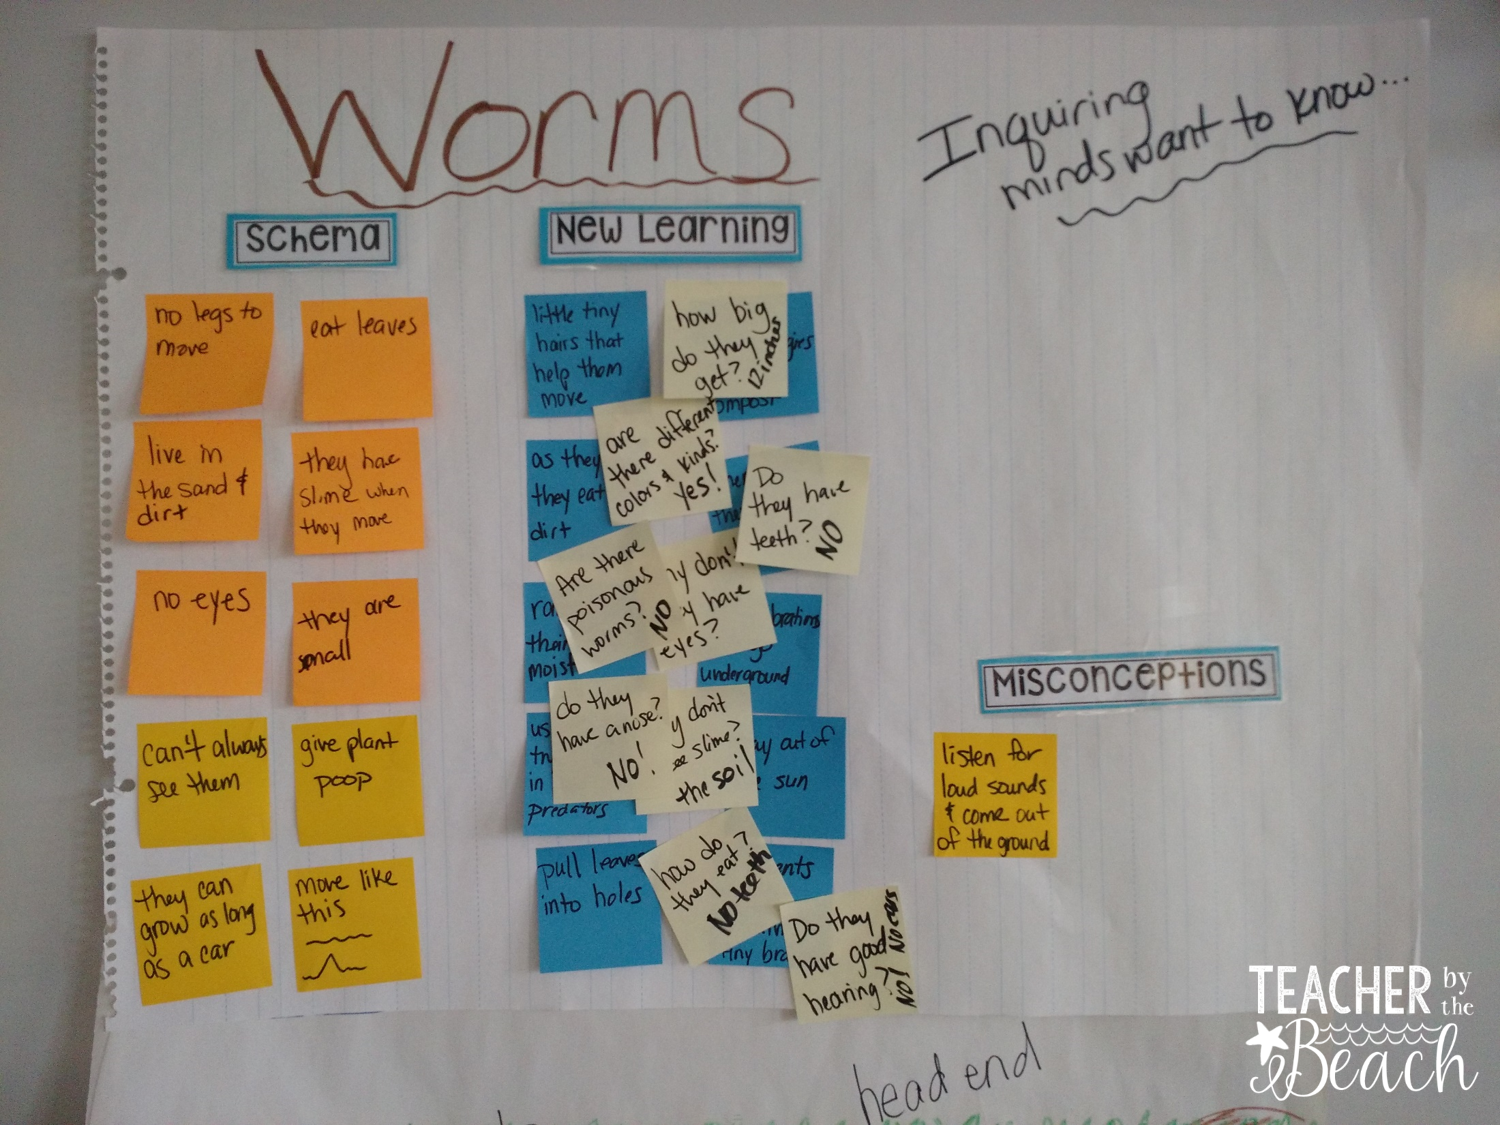 Worms
Inquiring
minds want to know...
Schema
New Learning
no legs to
move
eat leaves
live in
the sand &
dirt
they hae
slime when
they move
no eyes
they are
small
can't always
see them
give plant
poop
they can
grow as long
as a car
move like
this
little tiny
hairs that
help them
move
how big
do they
get?
12 inches
are
there different
colors & kinds?
yes!
as they
they eat
dirt
Do
they have
teeth?
NO
Are there
poisonous
worms?
NO
don't
have
eyes?
their
moist
underground
do they
have a nose?
NO!
don't
see slime?
the soil
in
predators
out of
sun
pull leaves
into holes
how do
they eat?
No teeth
Do they
have good
hearing?
No! No ears
Misconceptions
listen for
loud sounds
& come out
of the ground
head end
TEACHER by
the
Beach